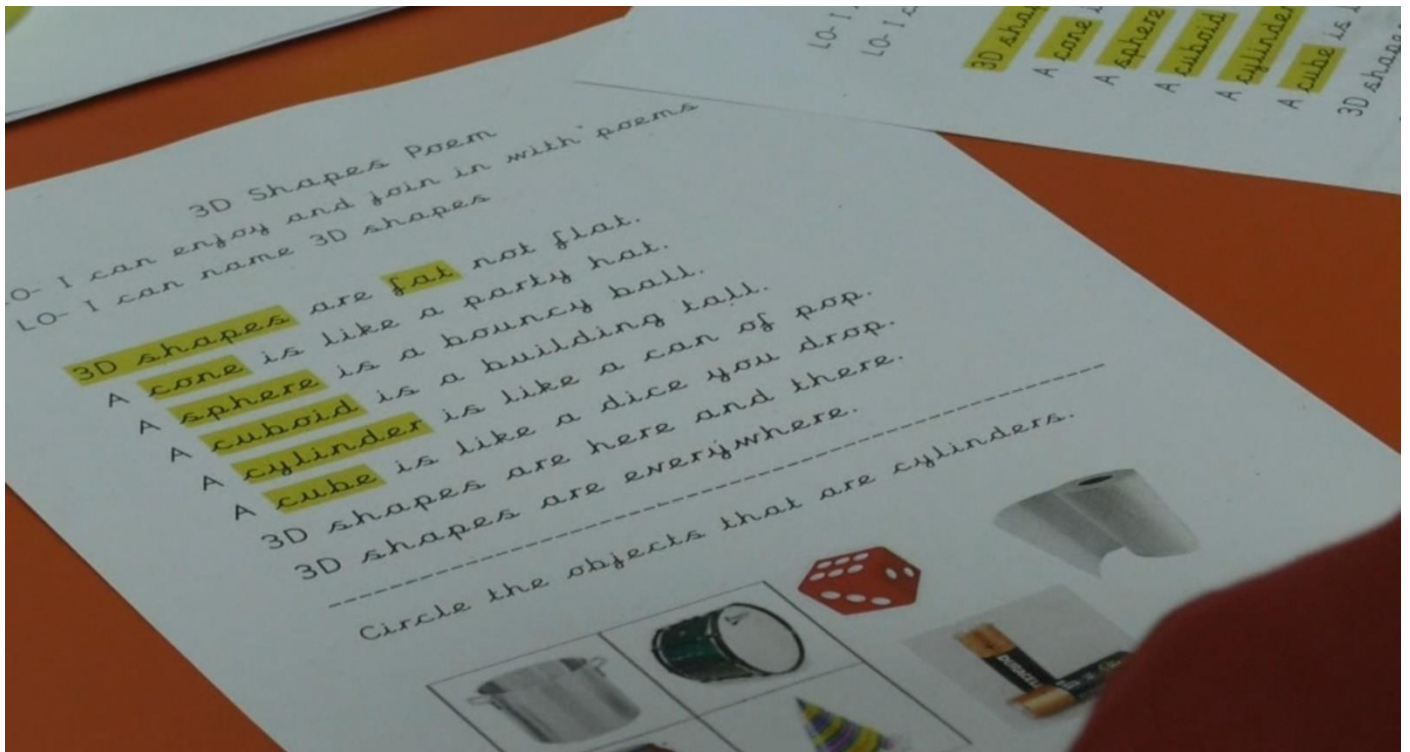 3D Shapes Poem
LO- I can enjoy and join in with poems
LO- I can name 3D shapes
3D shapes are fat not flat.
A cone is like a party hat.
A sphere is a bouncy ball.
A cuboid is a building tall.
A cylinder is like a can of pop.
A cube is like a dice you drop.
3D shapes are here and there.
3D shapes are everywhere.
Circle the objects that are cylinders.
LO- I
LO- I
3D
A cone
A sphere
A cuboid
A cylinder
A cube is
3D shapes